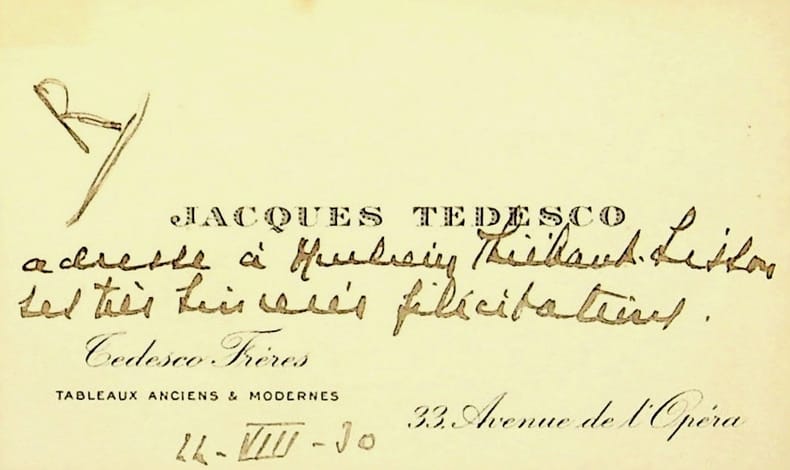 JACQUES TEDESCO
adresse à Monsieur Thiébault-Sisson
ses très sincères félicitations.
Tedesco Frères
TABLEAUX ANCIENS & MODERNES
33, Avenue de l'Opéra
22-VIII-30